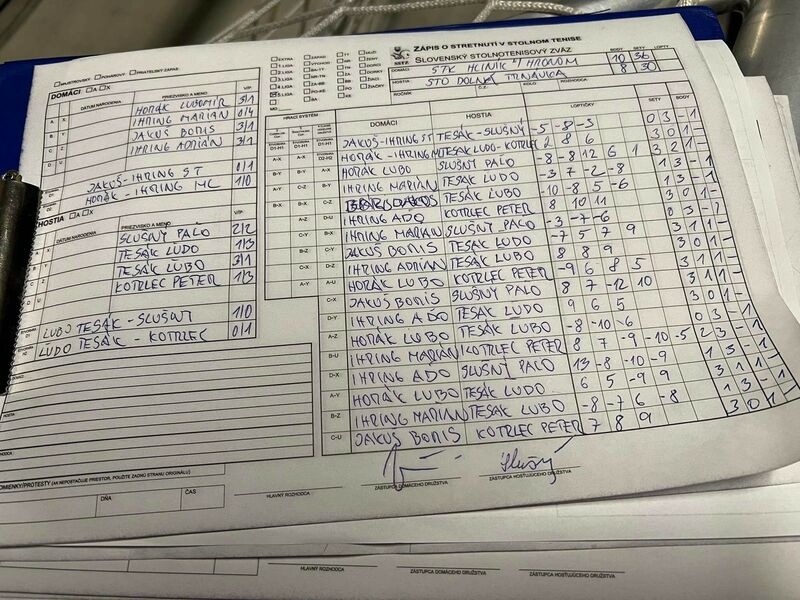 ZÁPIS O STRETNUTÍ V STOLNOM TENISE
SLOVENSKÝ STOLNOTENISOVÝ ZVÄZ
MAJSTROVSKÝ POHÁROVÝ PRIATEĽSKÝ ZÁPAS:
EXTRA
1. LIGA
2. LIGA
3. LIGA
4. LIGA
5. LIGA
MO
BODY SETY LOPTY
DOMÁCI STK HLINÍK n/HRONOM 10 36
HOSTIA STO DOLNÁ TRNÁVKA 8 30
DOMÁCI: A X
DÁTUM NARODENIA PRIEZVISKO A MENO V/P
HORÁK LUBOMÍR 3/1
IHRING MARIAN 0/4
JAKUŠ BORIS 3/1
IHRING ADRIÁN 3/1
JAKUŠ-IHRING ST 0/1
HORÁK - IHRING ML 1/0
HOSTIA A X
DÁTUM NARODENIA PRIEZVISKO A MENO V/P
SLUŠNÝ PALO 2/2
TESÁK LUDO 1/3
TESÁK LUBO 3/1
KOTRLEC PETER 1/3
LUBO TESÁK - SLUŠNÝ 1/0
LUDO TESÁK - KOTRLEC 0/1
HRACÍ SYSTÉM DOMÁCI HOSTIA LOPTIČKY SETY BODY
JAKUŠ-IHRING ST TESÁK-SLUŠNÝ -5 -8 -3 0 3 - 1
HORÁK - IHRING ML TESÁK LUDO - KOTRLEC 2 8 6 3 0 1 -
A-X HORÁK LUBO SLUŠNÝ PALO -8 -8 12 6 1 3 1 -
B-Y IHRING MARIAN TESÁK LUDO -3 7 -2 -8 1 3 - 1
TESÁK LUBO -10 -8 5 -6
IHRING ADO KOTRLEC PETER 8 10 11 3 0 1 -
IHRING MARIAN SLUŠNÝ PALO -3 -7 -6 0 3 - 1
JAKUŠ BORIS TESÁK LUDO -5 7 5 7 9 3 1 1 -
IHRING ADRIAN TESÁK LUBO 8 8 9 3 0 1 -
A-U HORÁK LUBO KOTRLEC PETER -9 6 8 5 3 1 1 -
C-X JAKUŠ BORIS SLUŠNÝ PALO 8 7 -12 10 3 1 1 -
D-Y IHRING ADO TESÁK LUDO 9 6 5 3 0 1 -
A-Z HORÁK LUBO TESÁK LUBO -8 -10 -6
B-U IHRING MARIAN KOTRLEC PETER 8 7 -9 -10 -5 2 3 - 1
D-X IHRING ADO SLUŠNÝ PALO 13 -8 -10 -9 1 3 - 1
A-Y HORÁK LUBO TESÁK LUDO 6 5 -9 9 3 1 1 -
B-Z IHRING MARIAN TESÁK LUBO -8 -7 6 -8 1 3 - 1
C-U JAKUŠ BORIS KOTRLEC PETER 7 8 9 3 0 1 -
(AK NEPOSTAČUJE PRIESTOR, POUŽITE ZADNÚ STRANU ORIGINÁLU)
DŇA ČAS
Slušný
HLAVNÝ ROZHODCA ZÁSTUPCA DOMÁCEHO DRUŽSTVA ZÁSTUPCA HOSŤUJÚCEHO DRUŽSTVA
HLAVNÝ ROZHODCA ZÁSTUPCA DOMÁCEHO DRUŽSTVA ZÁSTUPCA HOSŤUJÚCEHO DRUŽSTVA